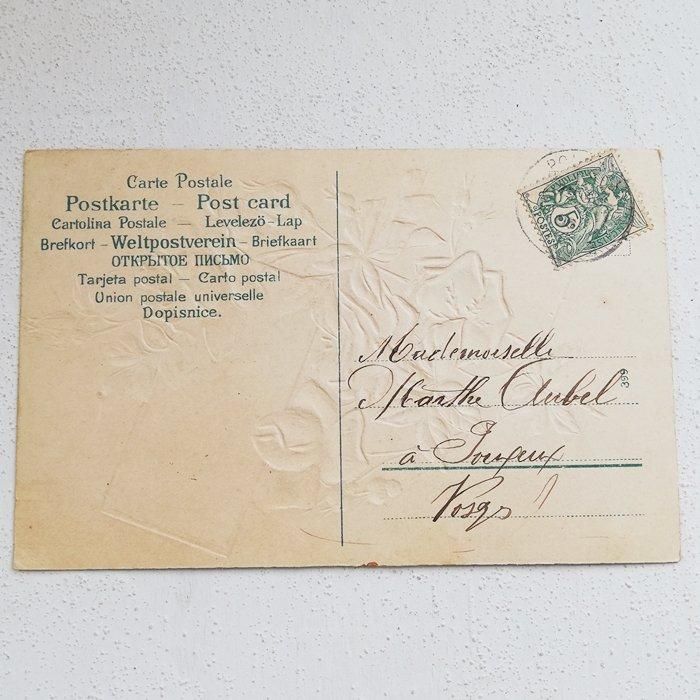 Carte Postale
Postkarte — Post card
Cartolina Postale — Levelező-Lap
Brefkort - Weltpostverein - Briefkaart
ОТКРЫТОЕ ПИСЬМО
Tarjeta postal — Carto postal
Union postale universelle
Dopisnice.
5c
POSTES
Mademoiselle
Marthe Aubel
399
à Pouxeux
Vosges